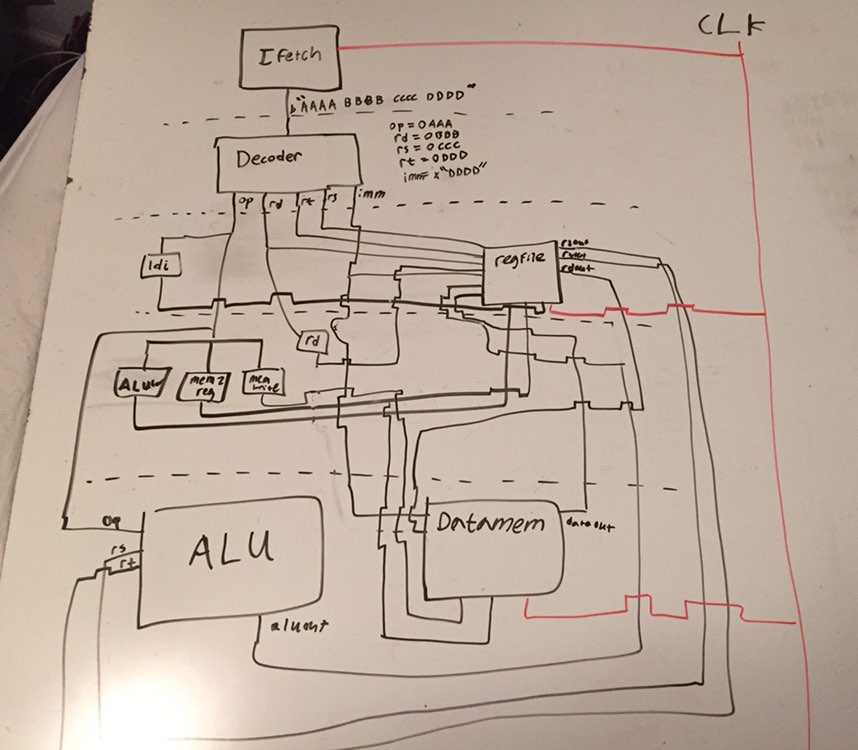 CLK
IFetch
b"AAAA BBBB CCCC DDDD"
op = 0AAA
rd = 0BBB
rs = 0CCC
rt = 0DDD
imm = x"DDDD"
Decoder
op rd rt rs imm
ldi
regfile
rsout
rdout
rd
ALUw
mem2
reg
mem
write
op
rs
rt
ALU
aluout
Datamem
dataout